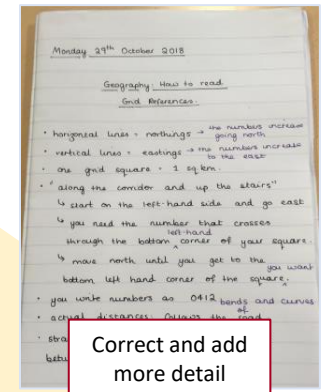 Monday 29th October 2018
Geography: How to read
Grid References.
• horizontal lines = northings → the numbers increase
going north
• vertical lines = eastings → the numbers increase
to the east
• one grid square = 1 sq km.
• "along the corridor and up the stairs"
↳ start on the left-hand side and go east
↳ you need the number that crosses
through the bottom left-hand ^ corner of your square.
↳ move north until you get to the
bottom left hand corner of the square ^ you want
• you write numbers as 0412
• actual distances: follows the bends and curves
of road
• stra
betw
Correct and add
more detail